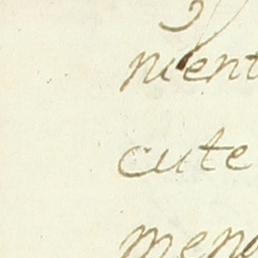 nient
cute
meno